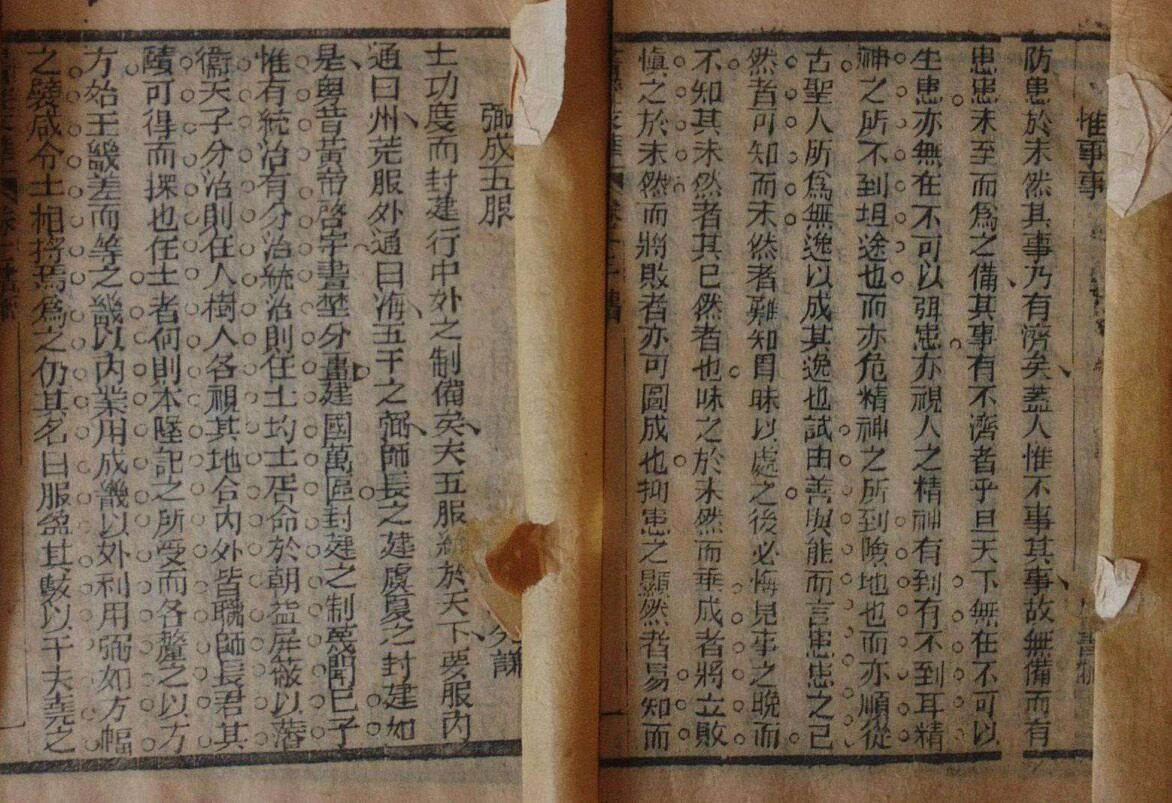 惟事事
防患於未然其事乃有濟矣蓋人惟不事其事故無備而有
患患未至而爲之備其事有不濟者乎且天下無在不可以
生患亦無在不可以弭患亦視人之精神有到有不到耳精
神之所不到坦途也而亦危精神之所到險地也而亦順從
古聖人所爲無逸以成其逸也試由善與能而言患患之已
然者可知而未然者難知冒昧以處之後必悔見事之晚而
不知其未然者其已然者也昧之於未然而垂成者將立敗
愼之於未然而將敗者亦可圖成也抑患之顯然者易知而
弼成五服
謙
士功度而封建行中外之制備矣夫五服統於天下要服內
通曰州荒服外通曰海五千之弼師長之建虞夏之封建如
是與昔黃帝啓宇畫埜分畺建國萬區封建之制蔑聞已予
惟有統治有分治統治則任土均土居命於朝益屏蔽以藩
衞天子分治則任人樹人各視其地合內外皆職師長君其
賾可得而探也任土者何則本墜記之所受而各釐之以方
方始王畿差而等之畿以內業用成畿以外利用弼如方幅
之襞咸令土相將焉爲之仍其名曰服盈其駭以千夫堯之